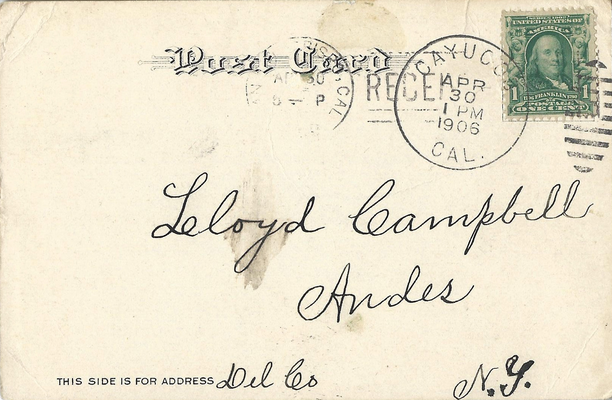 Post Card
CAYUCOS
APR
30
1 PM
1906
CAL.
CAL
30
P
RECEI
SERIES 1902
UNITED STATES OF
AMERICA
B. FRANKLIN
1 POSTAGE 1
ONE CENT
Lloyd Campbell
Andes
THIS SIDE IS FOR ADDRESS Del Co
N.Y.